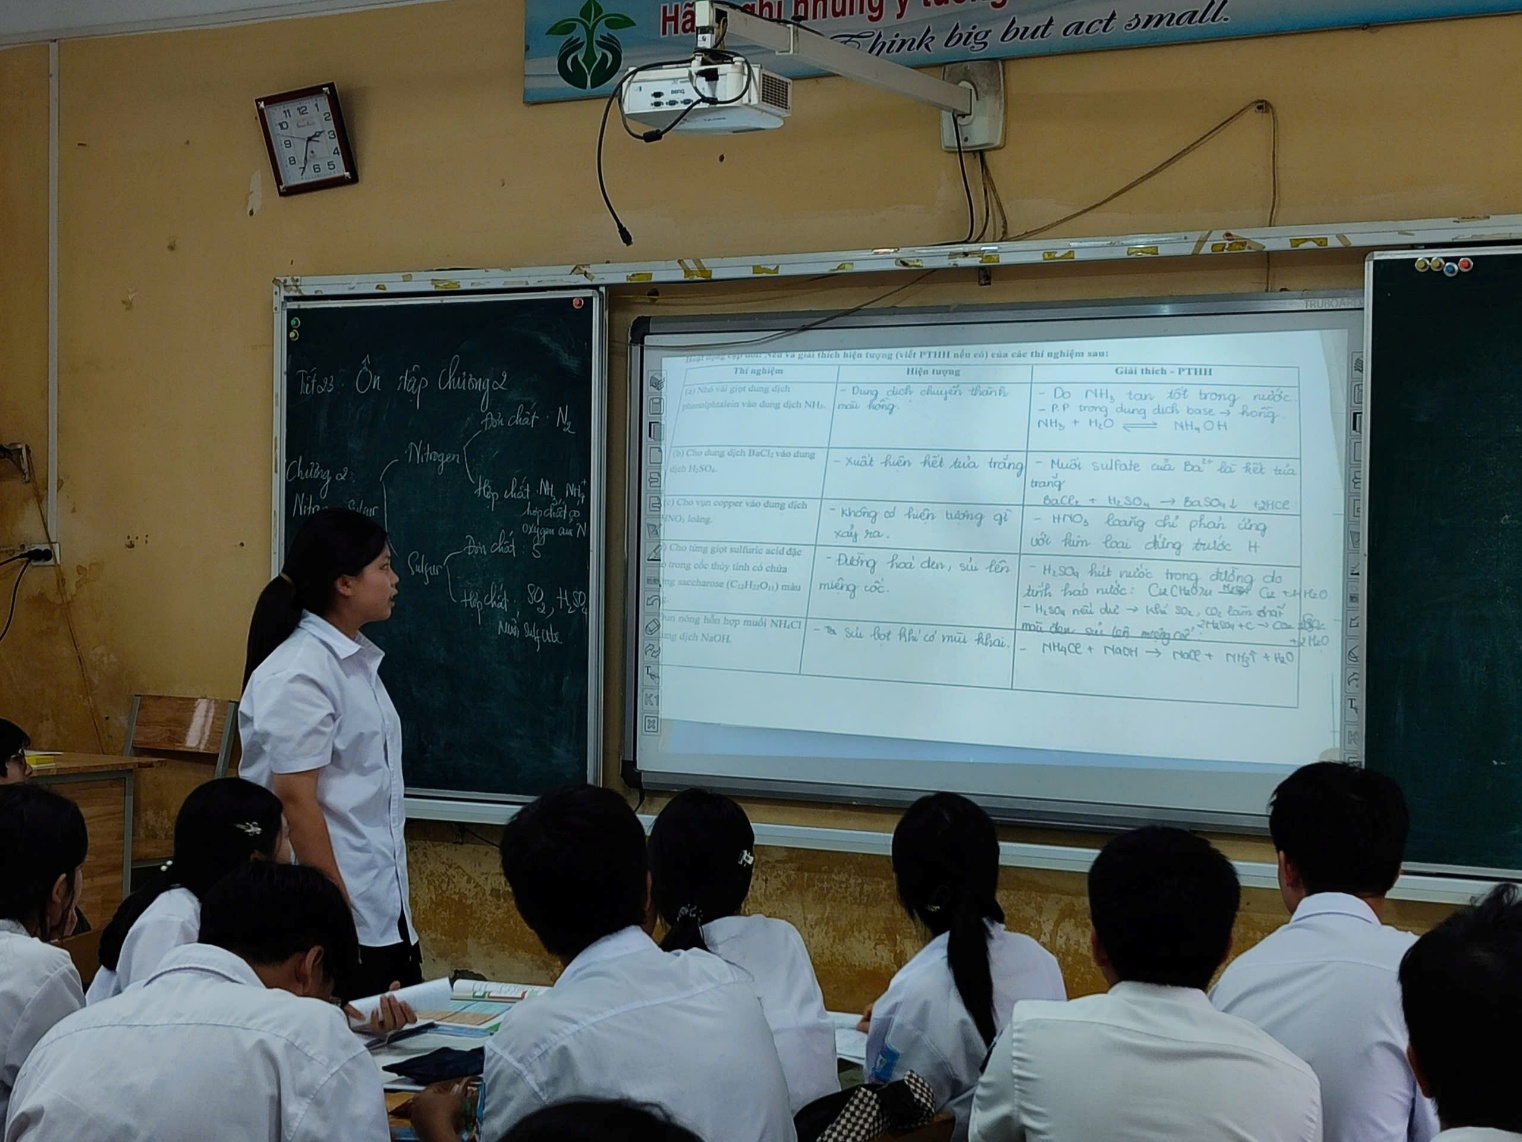 Think big but act small.
BenQ
11 12 1
10 2
9 3
8 4
7 6 5
TRUBOARD
Tiết 23: Ôn tập Chương 2
Đơn chất: N₂
Nitrogen
Chương 2
Hợp chất: NH₃, NH₄⁺
hợp chất
oxygen của N
Đơn chất: S
Sulfur
Hợp chất: SO₂, H₂SO₄
Muối sulfate
Nêu và giải thích hiện tượng (viết PTHH nếu có) của các thí nghiệm sau:
Thí nghiệm
Hiện tượng
Giải thích - PTHH
(a) Nhỏ vài giọt dung dịch
phenolphtalein vào dung dịch NH₃.
- Dung dịch chuyển thành
màu hồng.
- Do NH₃ tan tốt trong nước.
- P.P trong dung dịch base → hồng.
NH₃ + H₂O ⇌ NH₄OH
(b) Cho dung dịch BaCl₂ vào dung
dịch H₂SO₄.
- Xuất hiện kết tủa trắng
- Muối sulfate của Ba²⁺ là kết tủa
trắng
BaCl₂ + H₂SO₄ → BaSO₄↓ + 2HCl
(c) Cho vụn copper vào dung dịch
HNO₃ loãng.
- Không có hiện tượng gì
xảy ra.
- HNO₃ loãng chỉ phản ứng
với kim loại đứng trước H
Cho từng giọt sulfuric acid đặc
trong cốc thủy tinh có chứa
saccharose (C₁₂H₂₂O₁₁) màu
- Đường hoá đen, sủi lên
miệng cốc.
- H₂SO₄ hút nước trong đường do
tính háo nước:
- H₂SO₄ nếu dư → khí SO₂, CO₂ làm
màu đen sủi lên miệng cốc
nóng hỗn hợp muối NH₄Cl
dung dịch NaOH.
- Sủi bọt khí có mùi khai.
- NH₄Cl + NaOH → NaCl + NH₃↑ + H₂O